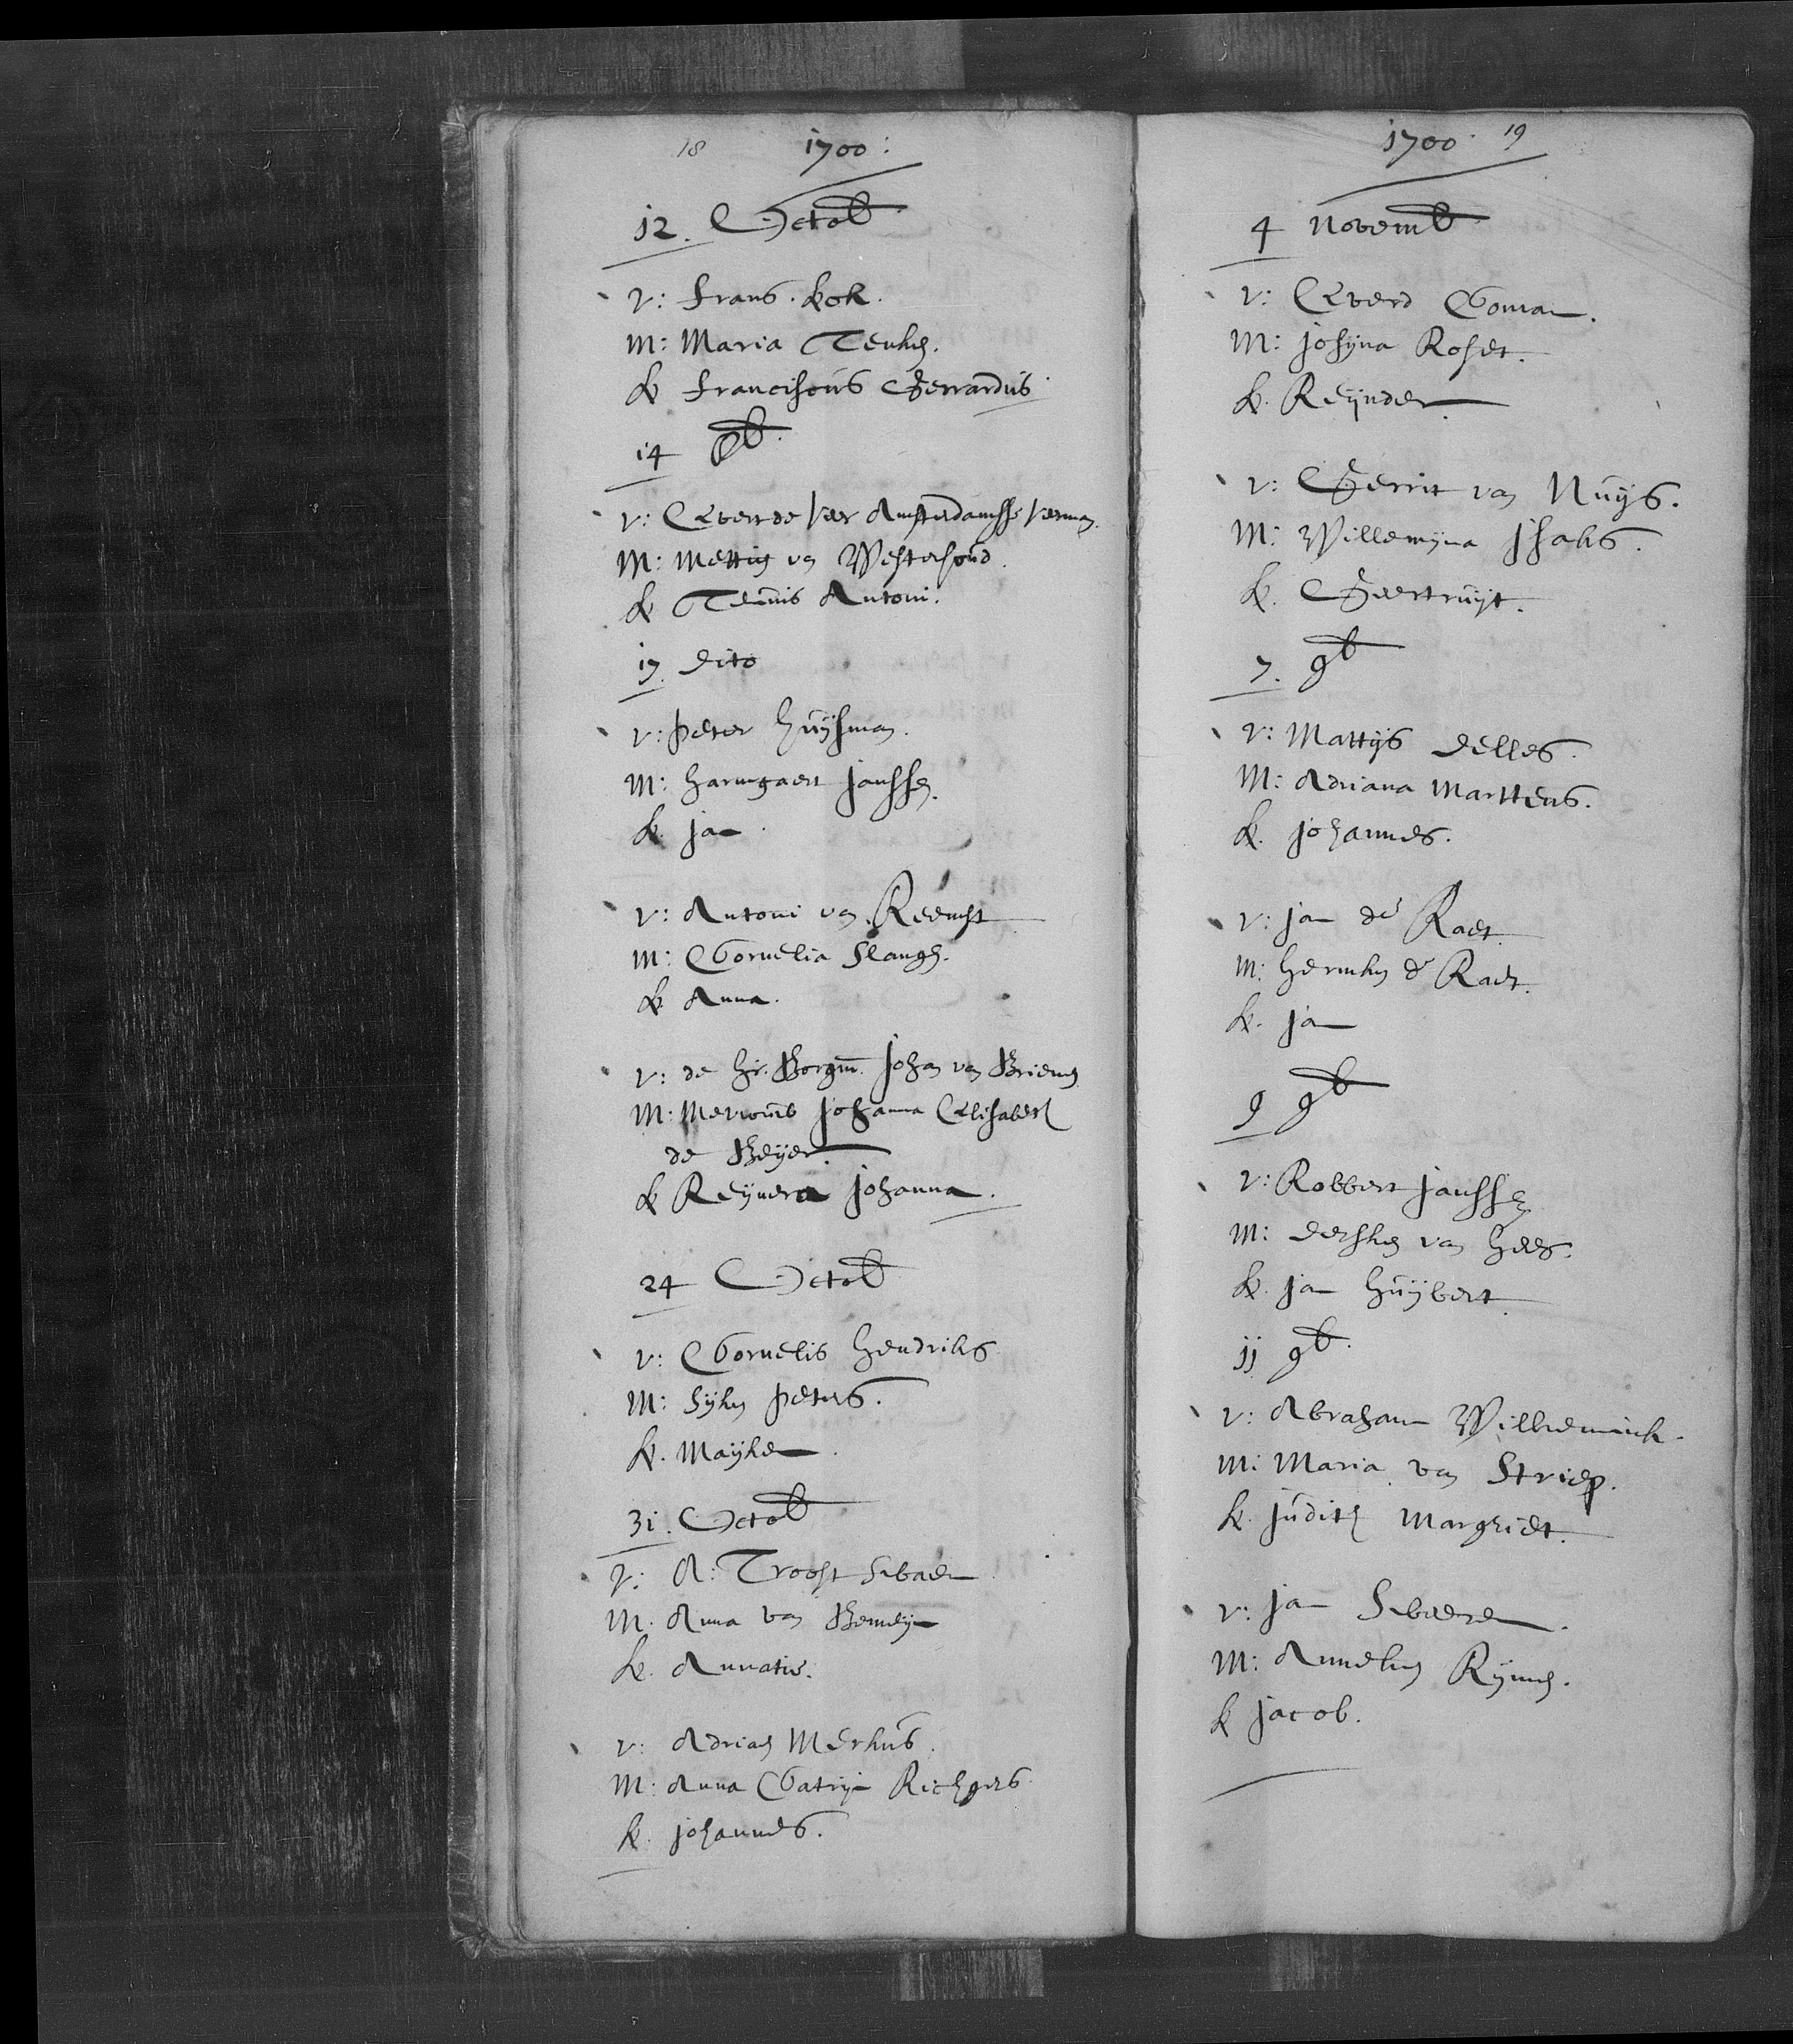 18 1700:
12. Octob
v: frans. kok.
M: Maria Tenks.
k franciscus Gerrardus
14 8b.
v: Evert de veer Amsterdamsse veerman.
M: Mettis van Westerhoud.
k Teunis Antoni.
17. dito
v: peter huijsman.
M: harmgaert jansse.
k. jan.
v: Antoni van Reemst
M: Cornelia Slangh.
k Anna.
v: de hr. Borgm. Johan van Brienen
M: Mevrouw johanna Elisabeth
de Beijer.
k Reijnera johanna.
24 Octob
v: Cornelis hendriks
M: sijken peters.
k. Maijken.
31. Octob
v: A: Troost
M. Anna van
k. Annatie.
v: Adriaen Merkus.
M: Anna Catrijn Richgers
k. johannes.
1700. 19
4 Novemb
v: Everd Coman.
M: josijna Roset.
k. Reijnder.
v: Gerrit van Nuijs.
M: Willemijna jsaks.
k. Geertruijt.
7. 9b
v: Mattijs delles.
M: Adriana Marttens.
k. johannes.
v: jan de Raet.
M: hermken de Raet.
k. jan
9 9b
v: Robbert jansse
M: dersken van hees.
k. jan huijbert.
11 9b.
v: Abraham Willemink.
M: Maria van Striep.
k. judith Margriet.
v: jan Sweeren.
M: Anneken Rijnen.
k jacob.